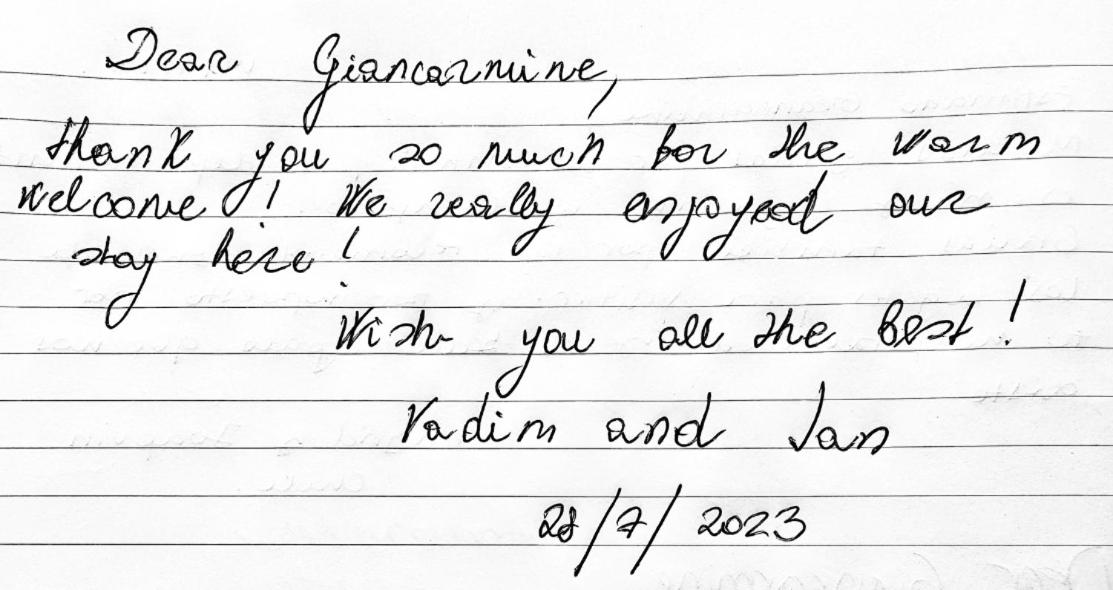 Dear Giancarmine,
thank you so much for the warm
welcome! We really enjoyed our
stay here!
Wish you all the best!
Vadim and Jan
28/7/2023